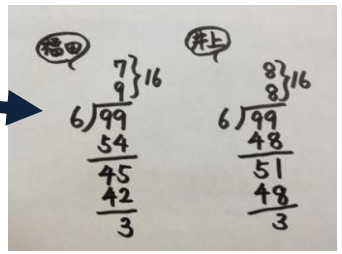 福田
7
9 } 16
6)99
54
45
42
3
井上
8
8 } 16
6)99
48
51
48
3